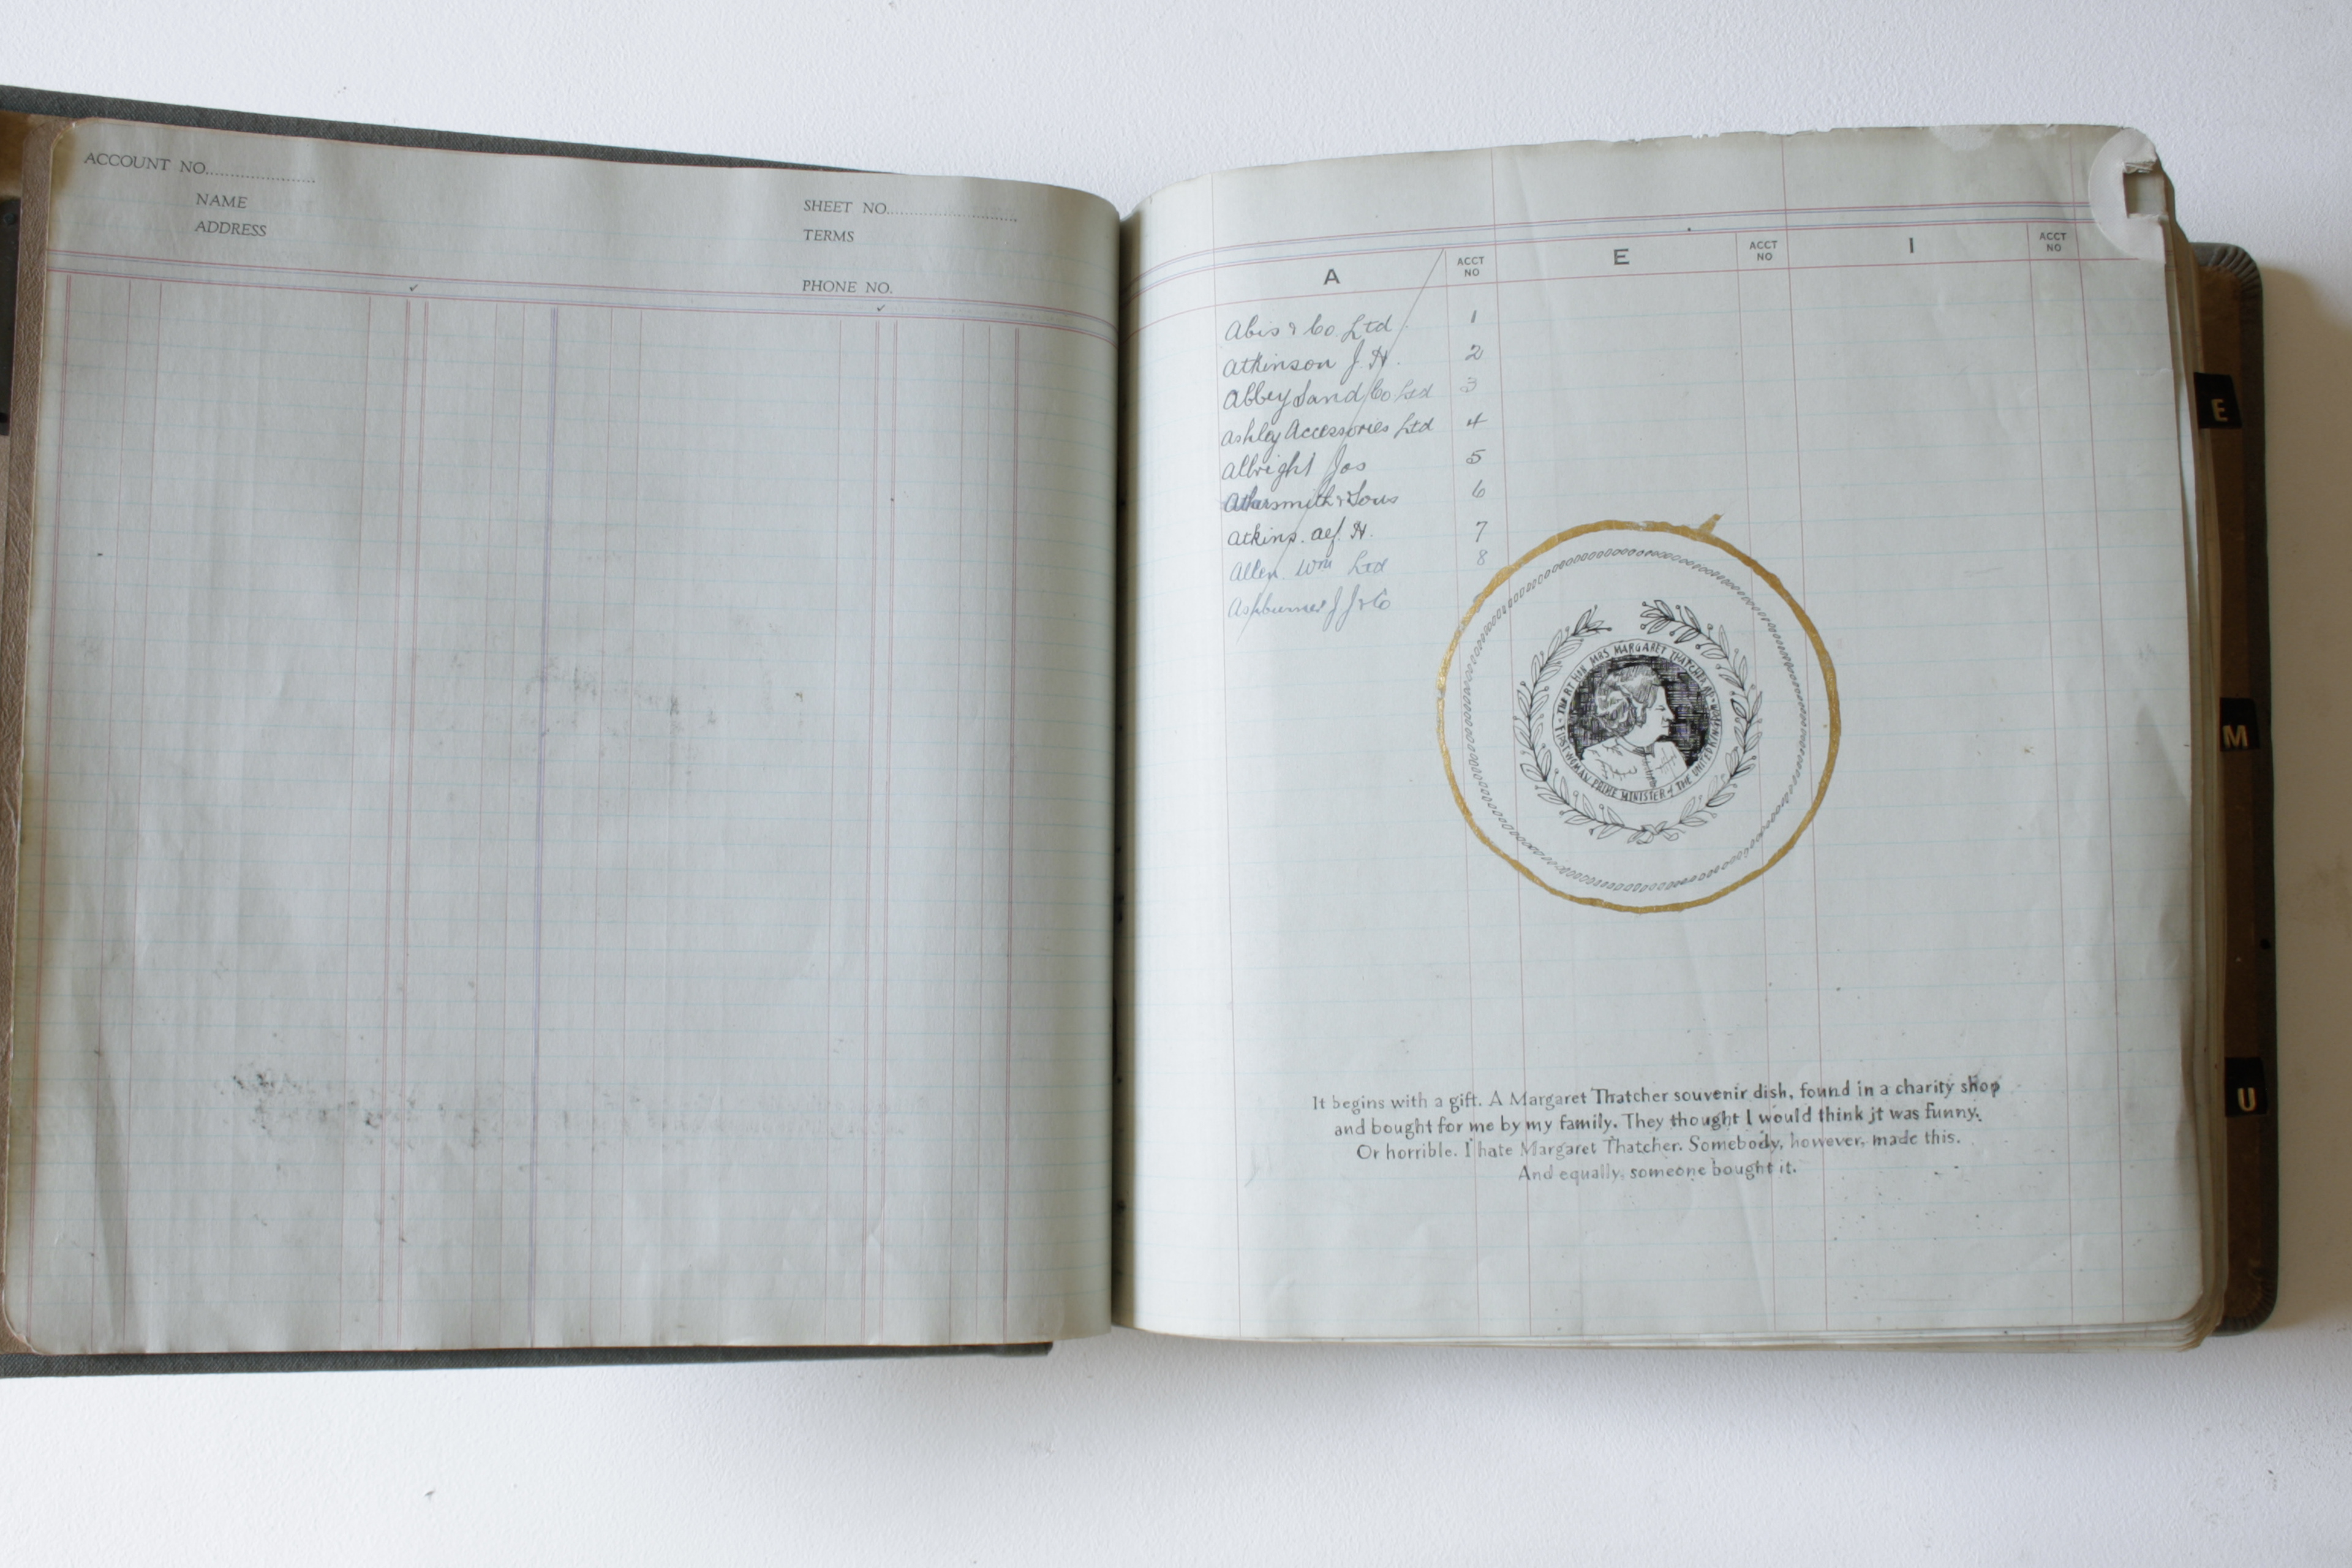 ACCOUNT NO.
NAME
ADDRESS
SHEET NO.
TERMS
PHONE NO.
A ACCT NO E ACCT NO I ACCT NO
Abis & Co. Ltd. 1
Atkinson J. H. 2
Abbey Sand Co Ltd 3
Ashley Accessories Ltd 4
Albright Jos 5
Athersmith & Sons 6
Atkins. Alf. H. 7
Allen. Wm Ltd 8
Ashburner J J & Co
THE RT HON MRS MARGARET THATCHER
FIRST WOMAN PRIME MINISTER of THE UNITED KINGDOM
It begins with a gift. A Margaret Thatcher souvenir dish, found in a charity shop
and bought for me by my family. They thought I would think it was funny.
Or horrible. I hate Margaret Thatcher. Somebody, however, made this.
And equally, someone bought it.
E
M
U